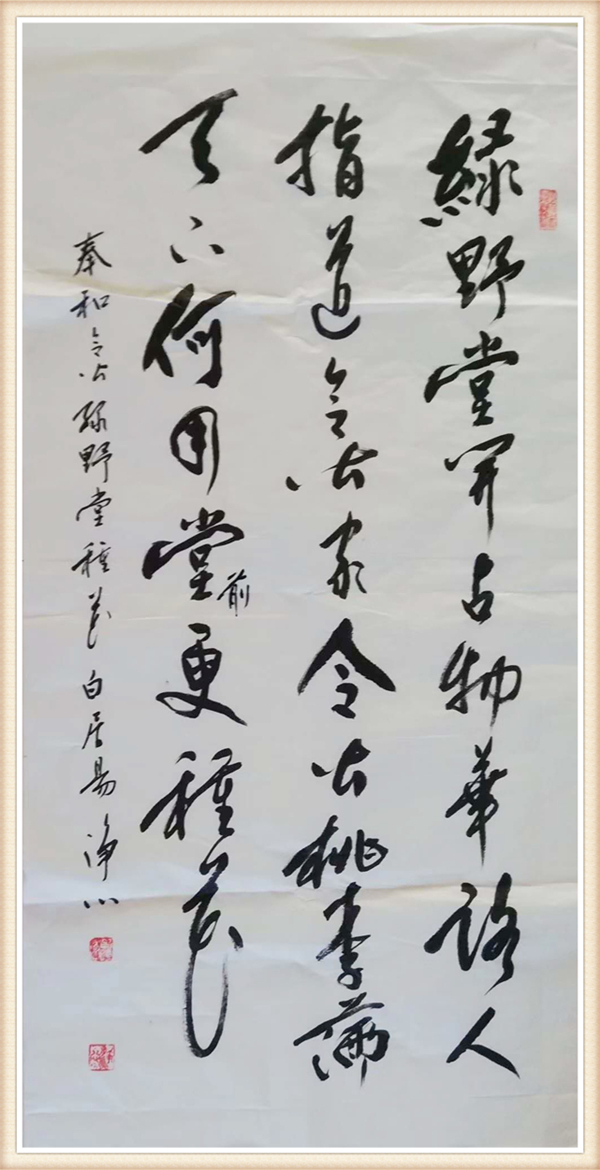 綠野堂開占物華路人
指道令公家令公桃李滿
天下何用堂前更種花
奉和令公綠野堂種花白居易淨心